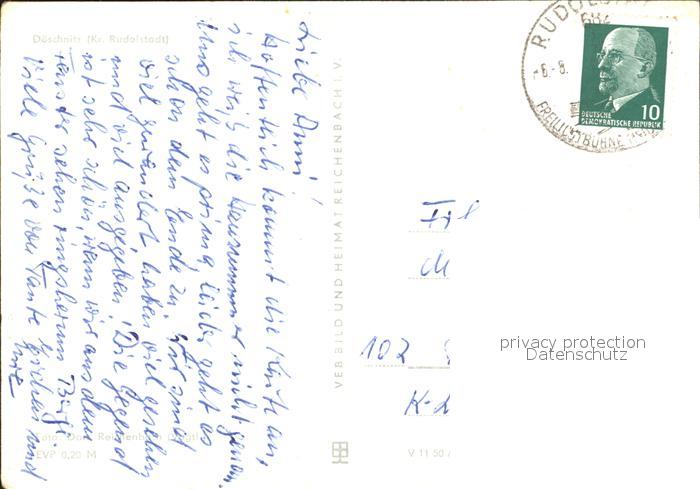 Döschnitz (Kr. Rudolstadt)
Liebe Anni!
Hoffentlich kommt die Karte an,
ich weiß die Hausnummer nicht genau.
Uns geht es prima, leider geht es
schon dem Ende zu. Wir sind
viel gewandert haben viel gesehen
und viel ausgegeben. Die Gegend
ist sehr schön, wenn wir aus dem
Fenster sehen ringsherum Berge
Viele Grüße von Tante und
Foto: Reichenbach
EVP 0,20 M
VEB BILD UND HEIMAT REICHENBACH I. V.
V 11 50
RUDOLSTADT
682
-6.-8.
FREILICHTBÜHNE
DEUTSCHE
DEMOKRATISCHE REPUBLIK
10
Frl
102
K-d
privacy protection
Datenschutz